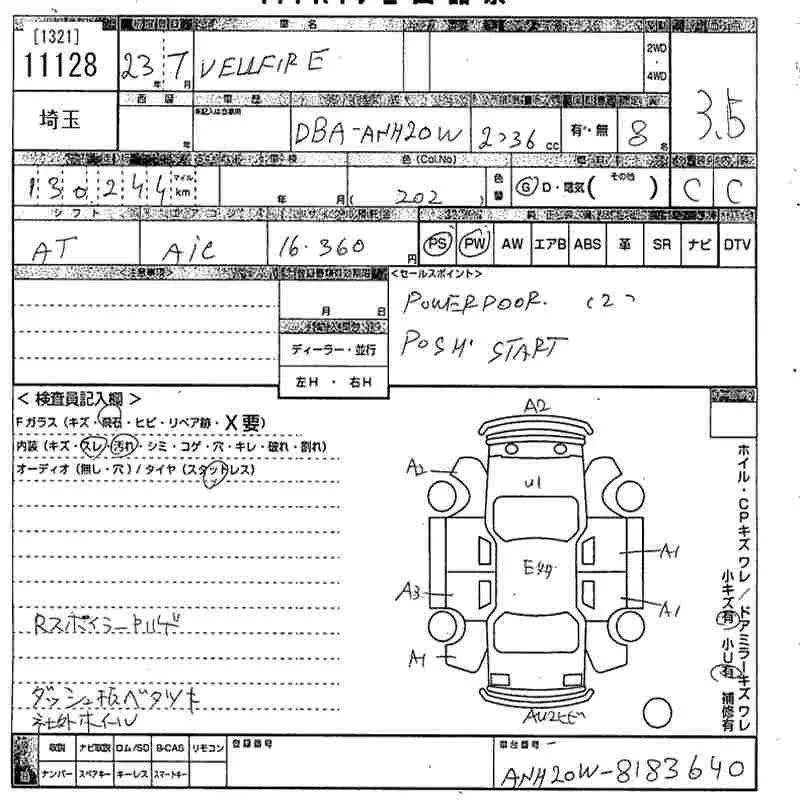 [1321]
11128
埼玉
車名
23年 7月
VELLFIRE
2WD
4WD
3.5
DBA-ANH20W
cc
有・無
8名
130244
マイル
km
年 月(
色(Col.No)
202
色替
G D・電気( その他 )
C C
シフト
エアコン
AT
A/C
16.360円
PS PW AW エアB ABS 革 SR ナビ DTV
<注意事項>
<セールスポイント>
月 日
POWER DOOR. (2)
POSH' START
ディーラー・並行
左H ・ 右H
<検査員記入欄>
Fガラス (キズ・飛石・ヒビ・リペア跡・X要)
内装 (キズ・スレ・汚れ・シミ・コゲ・穴・キレ・破れ・割れ)
オーディオ (無し・穴) / タイヤ (スタッドレス)
Rスポイラー
ダッシュ板ベタツキ
社外ホイール
A2
A2
U1
A1
A3
A1
A1
ホイル・CPキズワレ/ドアミラーキズワレ
小キズ有 小U有 補修有
取説 ナビ取説 ロム/SD B-CAS リモコン
ナンバー スペアキー キーレス スマートキー
登録番号
車台番号
ANH20W-8183640